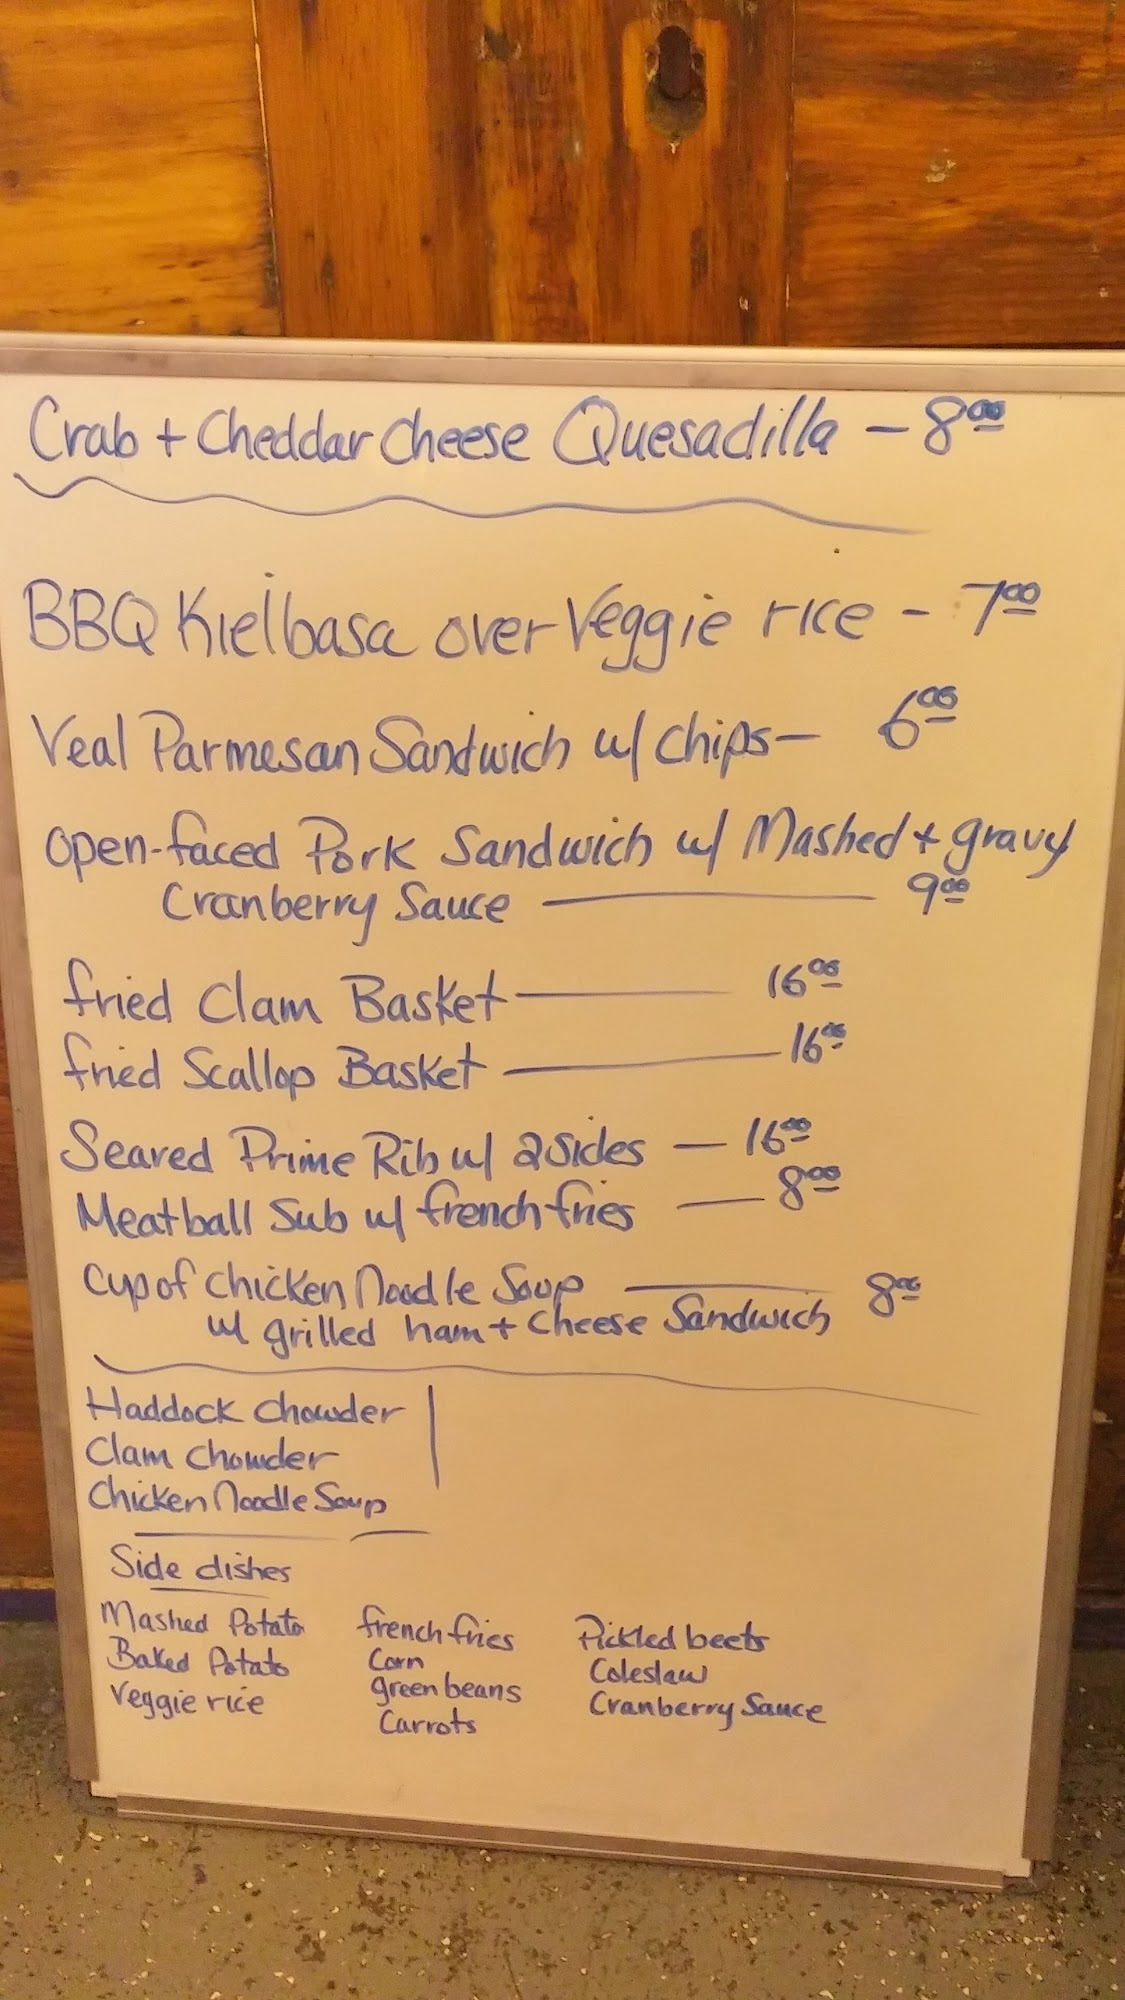 Crab + Cheddar Cheese Quesadilla — 8.00
BBQ Kielbasa over Veggie rice - 7.00
Veal Parmesan Sandwich w/ chips — 6.00
Open-faced Pork Sandwich w/ Mashed + gravy
Cranberry Sauce — 9.00
fried Clam Basket — 16.00
fried Scallop Basket — 16.00
Seared Prime Rib w/ 2 Sides — 16.00
Meatball Sub w/ french fries — 8.00
Cup of Chicken Noodle Soup — 8.00
w/ grilled ham + Cheese Sandwich
Haddock Chowder
Clam Chowder
Chicken Noodle Soup
Side dishes
Mashed Potato french fries Pickled beets
Baked Potato Corn Coleslaw
Veggie rice green beans Cranberry Sauce
Carrots